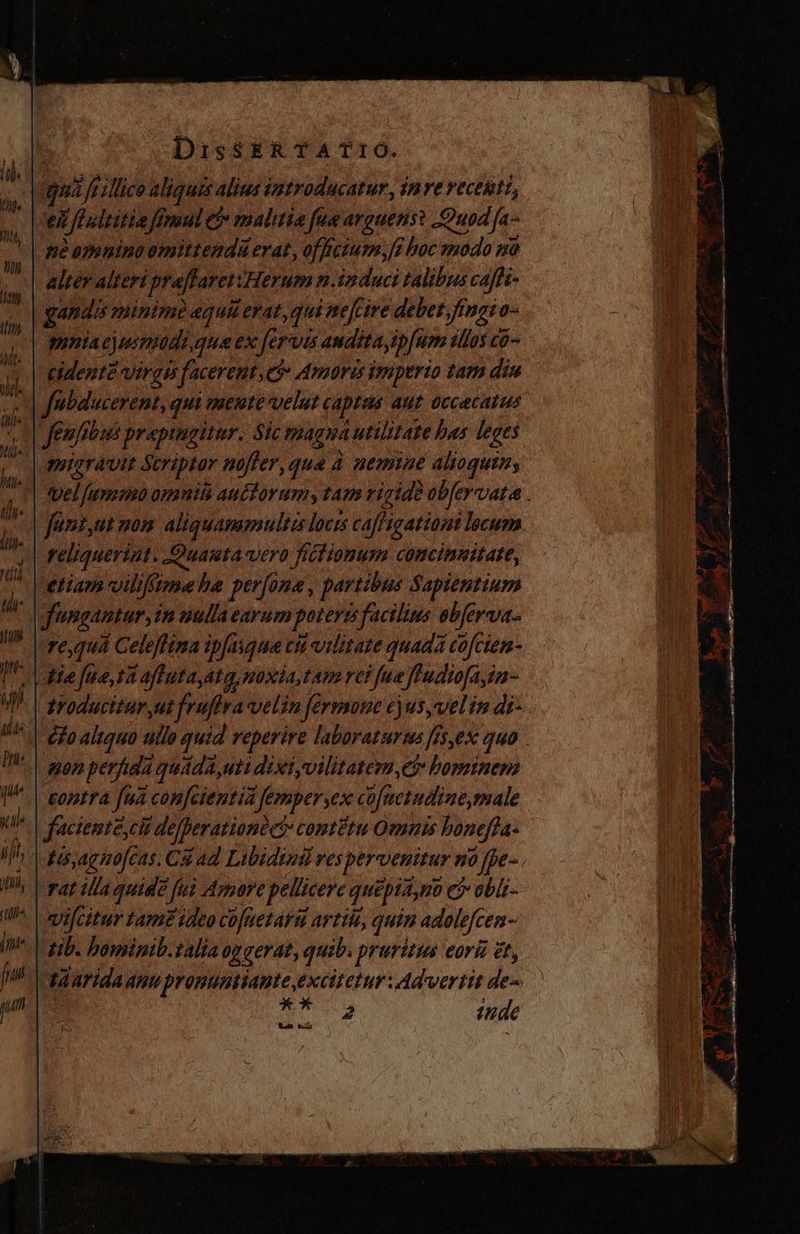 DISSERTATIO.
quã si illico aliquis alius introducatur, in re recenti,
eũ stultitia simul & malitia sua arguens? Quod sa-
nè omnino omittendũ erat, officium, si hoc modo nõ
alter alteri præstaret: Herum n. induci talibus casti-
gandis minimè æquũ erat, qui nescire debet, fingi o-
mnia ejusmodi, quæ ex servis audita, ipsum illos cõ-
cidentẽ virgis facerent, & Amoris imperio tam diu
subducerent, qui mente velut captus aut occæcatus
sensibus præpingitur. Sic magnâ utilitate has leges
migravit Scriptor noster, quæ à nemine alioquin,
vel summo omniũ auctorum, tam rigidè observatæ
sunt, ut non aliquammultis locis castigationi locum
reliquerint. Quanta vero fictionum concinnitate,
etiam vilissimæ hæ personæ, partibus Sapientium
fungantur, in nulla earum poteris facilius observa-
re, quã Celestina ipsasque cũ vilitate quadã cõscien-
tiæ suæ, tã astuta, atq; noxia, tam rei suæ studiosa, in-
troducitur, ut frustra vel in sermone ejus, vel in di-
cto aliquo ullo quid reperire laboraturus sis, ex quo
non perfidã quãdã, uti dixi, vilitatem, & hominem
contra suã conscientiã semper, ex cõsuetudine, male
facientẽ, cũ desperationè & contẽtu Omnis honesta-
tis, agnoscas. Cũ ad Libidinũ res pervenitur nõ spe-
rat illa quidẽ sui Amore pellicere quẽpiã, nõ & obli-
viscitur tamẽ ideo cõsuetarũ artiũ, quin adolescen-
tib. hominib. talia oggerat, quib. pruritus eorũ èt,
tã arida anu pronuntiante, excitetur: Advertit de-
** 2 inde